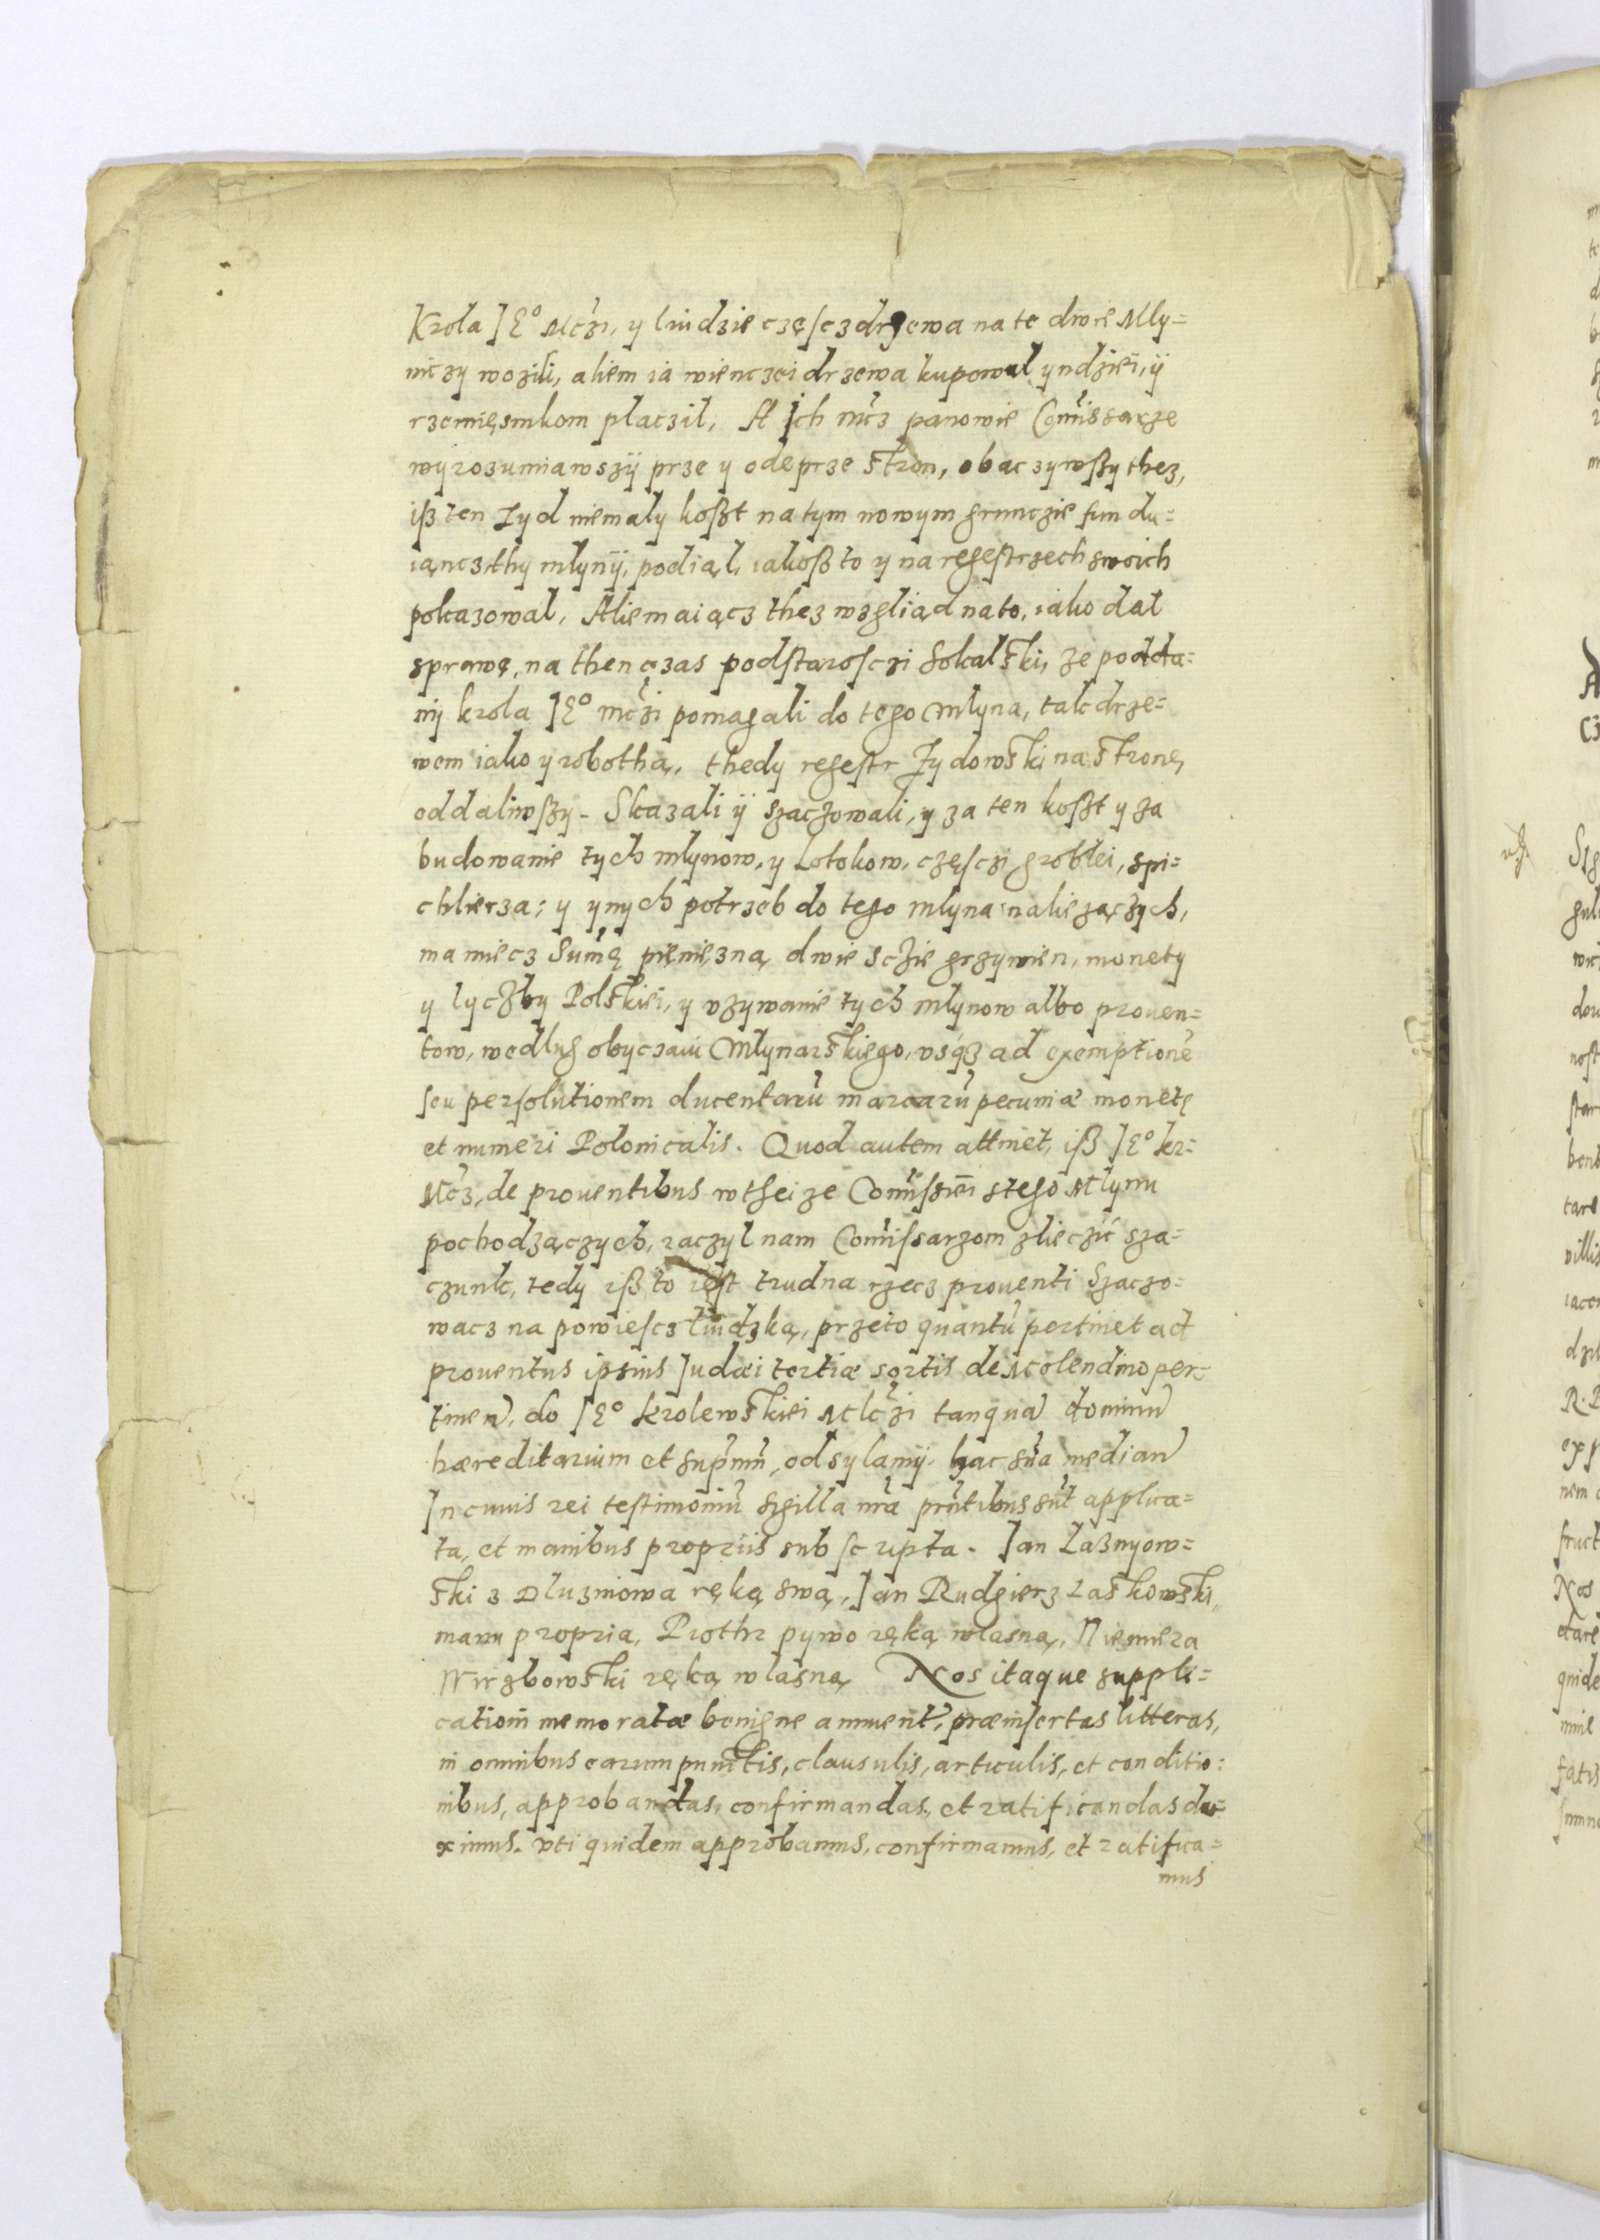 Krola JE° Mczi, y liudzie częscz drzewa na te dwie Mly=
niczy wozili, aliem ia wienczei drzewa kupowal yndziei, ÿ
rzemięsnikom placzil, A Jch mcz panowie Comissarze
wyrozumiawszÿ prze y odeprze stron, obaczywszy thez,
isz ten Zyd niemaly koszt na tym nowym grunczie fundu=
iąncz thy mlynÿ, podiąl, iakosz to y na regestrzech swoich
pokazowal, Aliem aiącz thez wzgliąd na to, iako dal
sprawę, na then czas podstarosczi Sokalski, ze podda=
nij krola JE° mczi pomagali do tego Mlyna, tak drze=
wem iako y robothą, thedy regestr Zydowski na stronę
oddaliwszy. Skazali ÿ szaczowali, y za ten koszt y za
budowanie tych mlynow, y Lotokow, częsczi groblei, spi=
chlierza; y ynych potrzeb do tego mlyna naliezączych,
ma miecz Sumę pięnięzną dwie sczie grzywien, monety
y lyczby Polskiei, y vzywanie tych mlynow albo prouen=
tow, wedlug obyczaiu Mlynarskiego, vsq3 ad exemptione
seu persolutionem ducentaru marcaru pecuniæ monetę
et numeri Polonicalis. Quod autem attinet, isz JE° kr=
Mcz, de prouentibus w thei ze Comissiei s tego Mlynu
pochodzączych, raczyl nam Comissarzom zlieczić sza=
czunk, tedy isz to iest trudna rzecz prouenti Szaczo=
wacz na powiescz liudzką, przeto quantu pertinet ad
prouentus ipsius Judæi tertiæ sortis de Molendino per=
tinen, do JE° krolewskiei Mczi tanqua dominu
hæreditarium et supmu, odsylamÿ. hac sna median
In cuius rei testimoniu sigilla nra prntibus sut applica=
ta, et manibus propriis subscripta. Jan Laznyow=
ski z Dluzniowa ręką swą, Jan Rudgierz Laskowski,
manu propria, Piothr pywo ręką wlasną, Niemiera
Wirzbowski ręką wlasną Nos itaque suppli=
cationi memoratæ benigne annuent, præinsertas litteras,
in omnibus earum punctis, clausulis, articulis, et conditio:
nibus, approbandas, confirmandas, et ratificandas du=
ximus. vti quidem approbamus, confirmamus, et ratifica=
mus